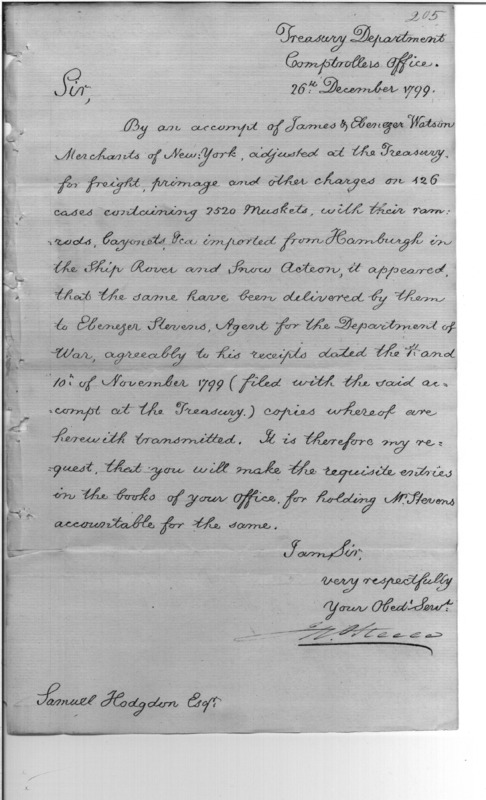 205
Treasury Department
Comptrollers Office.
26th December 1799.
Sir,
By an accompt of James & Ebenezer Watson
Merchants of New-York, adjusted at the Treasury,
for freight, primage and other charges on 126
cases containing 2520 Muskets, with their ram=
rods, bayonets, &ca imported from Hamburgh in
the Ship Rover and Snow Acteon, it appeared,
that the same have been delivered by them
to Ebenezer Stevens, Agent for the Department of
War, agreeably to his receipts dated the and
10th of November 1799 (filed with the said ac=
compt at the Treasury.) copies whereof are
herewith transmitted. It is therefore my re=
quest, that you will make the requisite entries
in the books of your Office, for holding Mr. Stevens
accountable for the same.
I am, Sir,
very respectfully
Your Obedt. Servt.
Samuel Hodgdon Esqr.